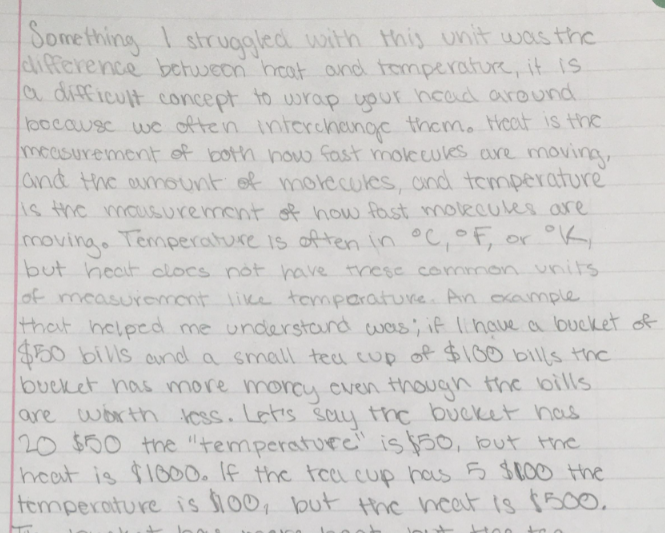 Something I struggled with this unit was the
difference between heat and temperature, it is
a difficult concept to wrap your head around
because we often interchange them. Heat is the
measurement of both how fast molecules are moving,
and the amount of molecules, and temperature
is the mausurement of how fast molecules are
moving. Temperature is often in °C, °F, or °K,
but heat does not have these common units
of measurement like temperature. An example
that helped me understand was; if I have a bucket of
$50 bills and a small tea cup of $100 bills the
bucket has more money even though the bills
are worth less. Let's say the bucket has
20 $50 the "temperature" is $50, but the
heat is $1000. If the tea cup has 5 $100 the
temperature is $100, but the heat is $500.